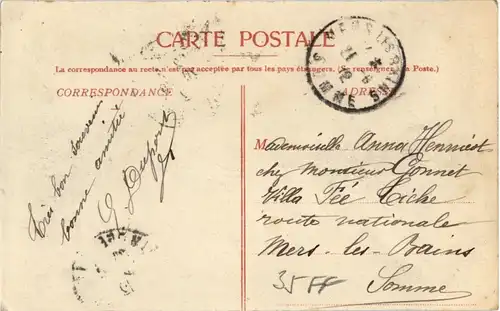 CARTE POSTALE
La correspondance au recto n'est pas acceptée par tous les pays étrangers. (Se renseigner à la Poste.)
CORRESPONDANCE
ADRESSE
Très bon souvenir
bonne amitié
G. Dupont
Mademoiselle Anna Henriest
chez Monsieur Gonnet
Villa Fée Liche
route nationale
Mers-les-Bains
Somme
35 FF
MERS LES BAINS
SOMME